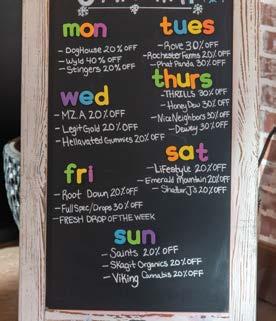 mon
- DogHouse 20% OFF
- Wyld 40% OFF
- Stingers 20% OFF
tues
- Rove 30% OFF
- Rochester Farms 20% OFF
- Phat Panda 30% OFF
wed
- MZ.A 20% OFF
- Legit Gold 20% OFF
- Hellavated Gummies 20% OFF
thurs
- THRILLS 30% OFF
- Honey Dew 30% OFF
- Nice Neighbors 30% OFF
- Dewey 30% OFF
fri
- Root Down 20% OFF
- Full Spec/Drops 30% OFF
- FRESH DROP OF THE WEEK
sat
- Lifestyle 20% OFF
- Emerald Mountain 20% OFF
- Shatter J's 20% OFF
sun
- Saints 20% OFF
- Skagit Organics 20% OFF
- Viking Cannabis 20% OFF